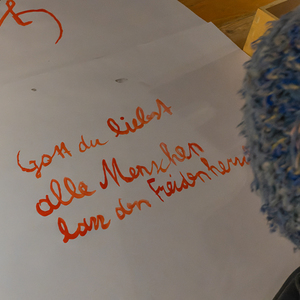 Gott du liebst
alle Menschen
lass den Frieden